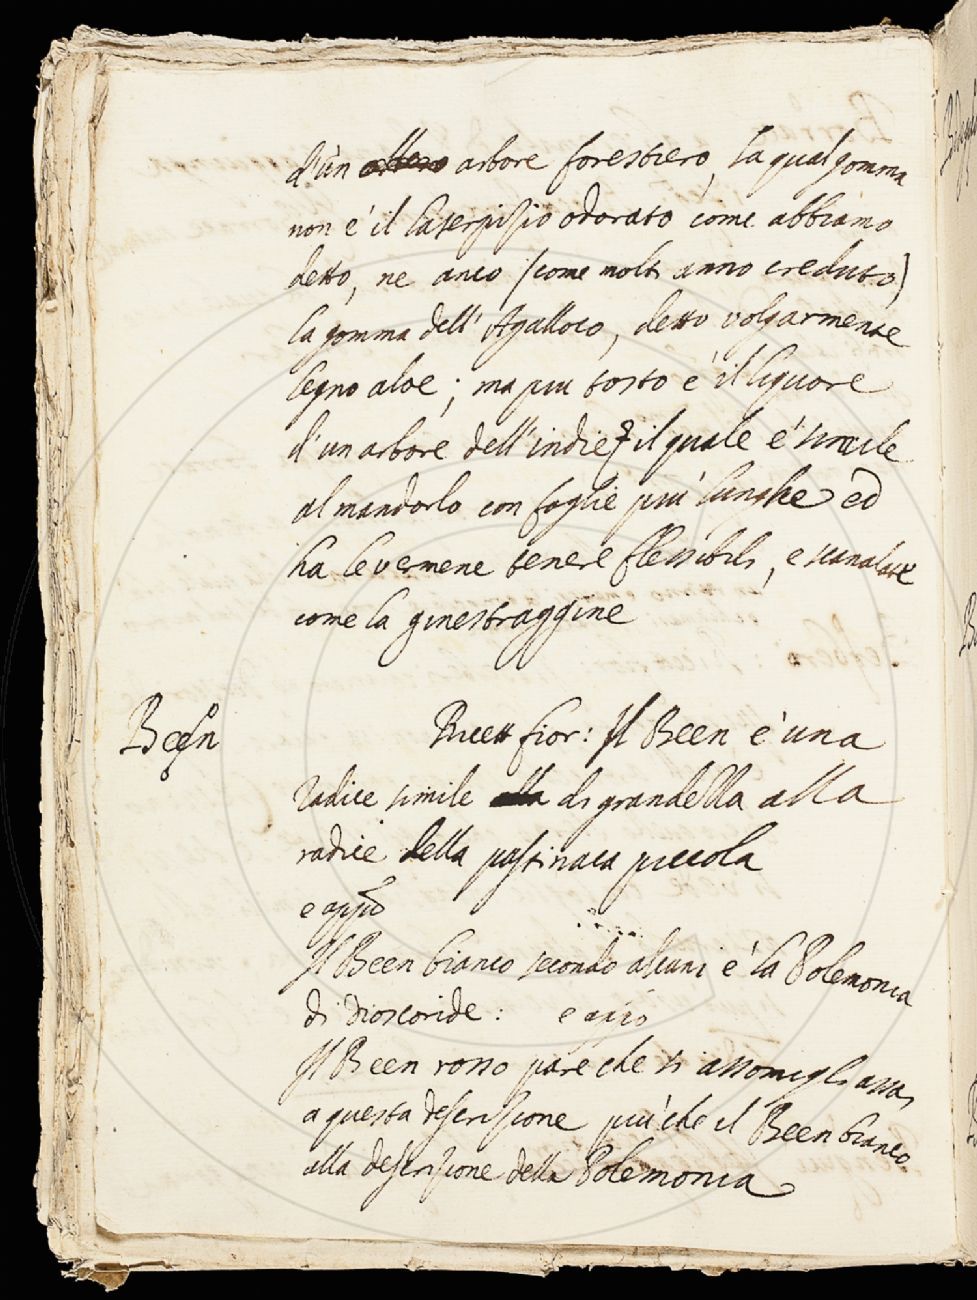 d'un arbore forestiero, la qual gomma
non è il laserpisio odorato come abbiamo
detto, ne anco (come molti anno creduto)
la gomma dell' Agalloco, detto volgarmente
legno aloe; ma piu tosto è il liquore
d'un arbore dell'indie, il quale è simile
al mandorlo con foglie più lunghe ed
ha le vermene tenere flessibili, e scanalate
come la ginestraggine
Been
Ricett fior: Il Been è una
radice simile di grandella alla
radice della pastinaca piccola
e appo
Il Been bianco secondo alcuni è la Polemonia
di Dioscoride: e appo
Il Been rosso pare che si assomigli assai
a questa descrisione più che il Been bianco
alla descrisione della Polemonia